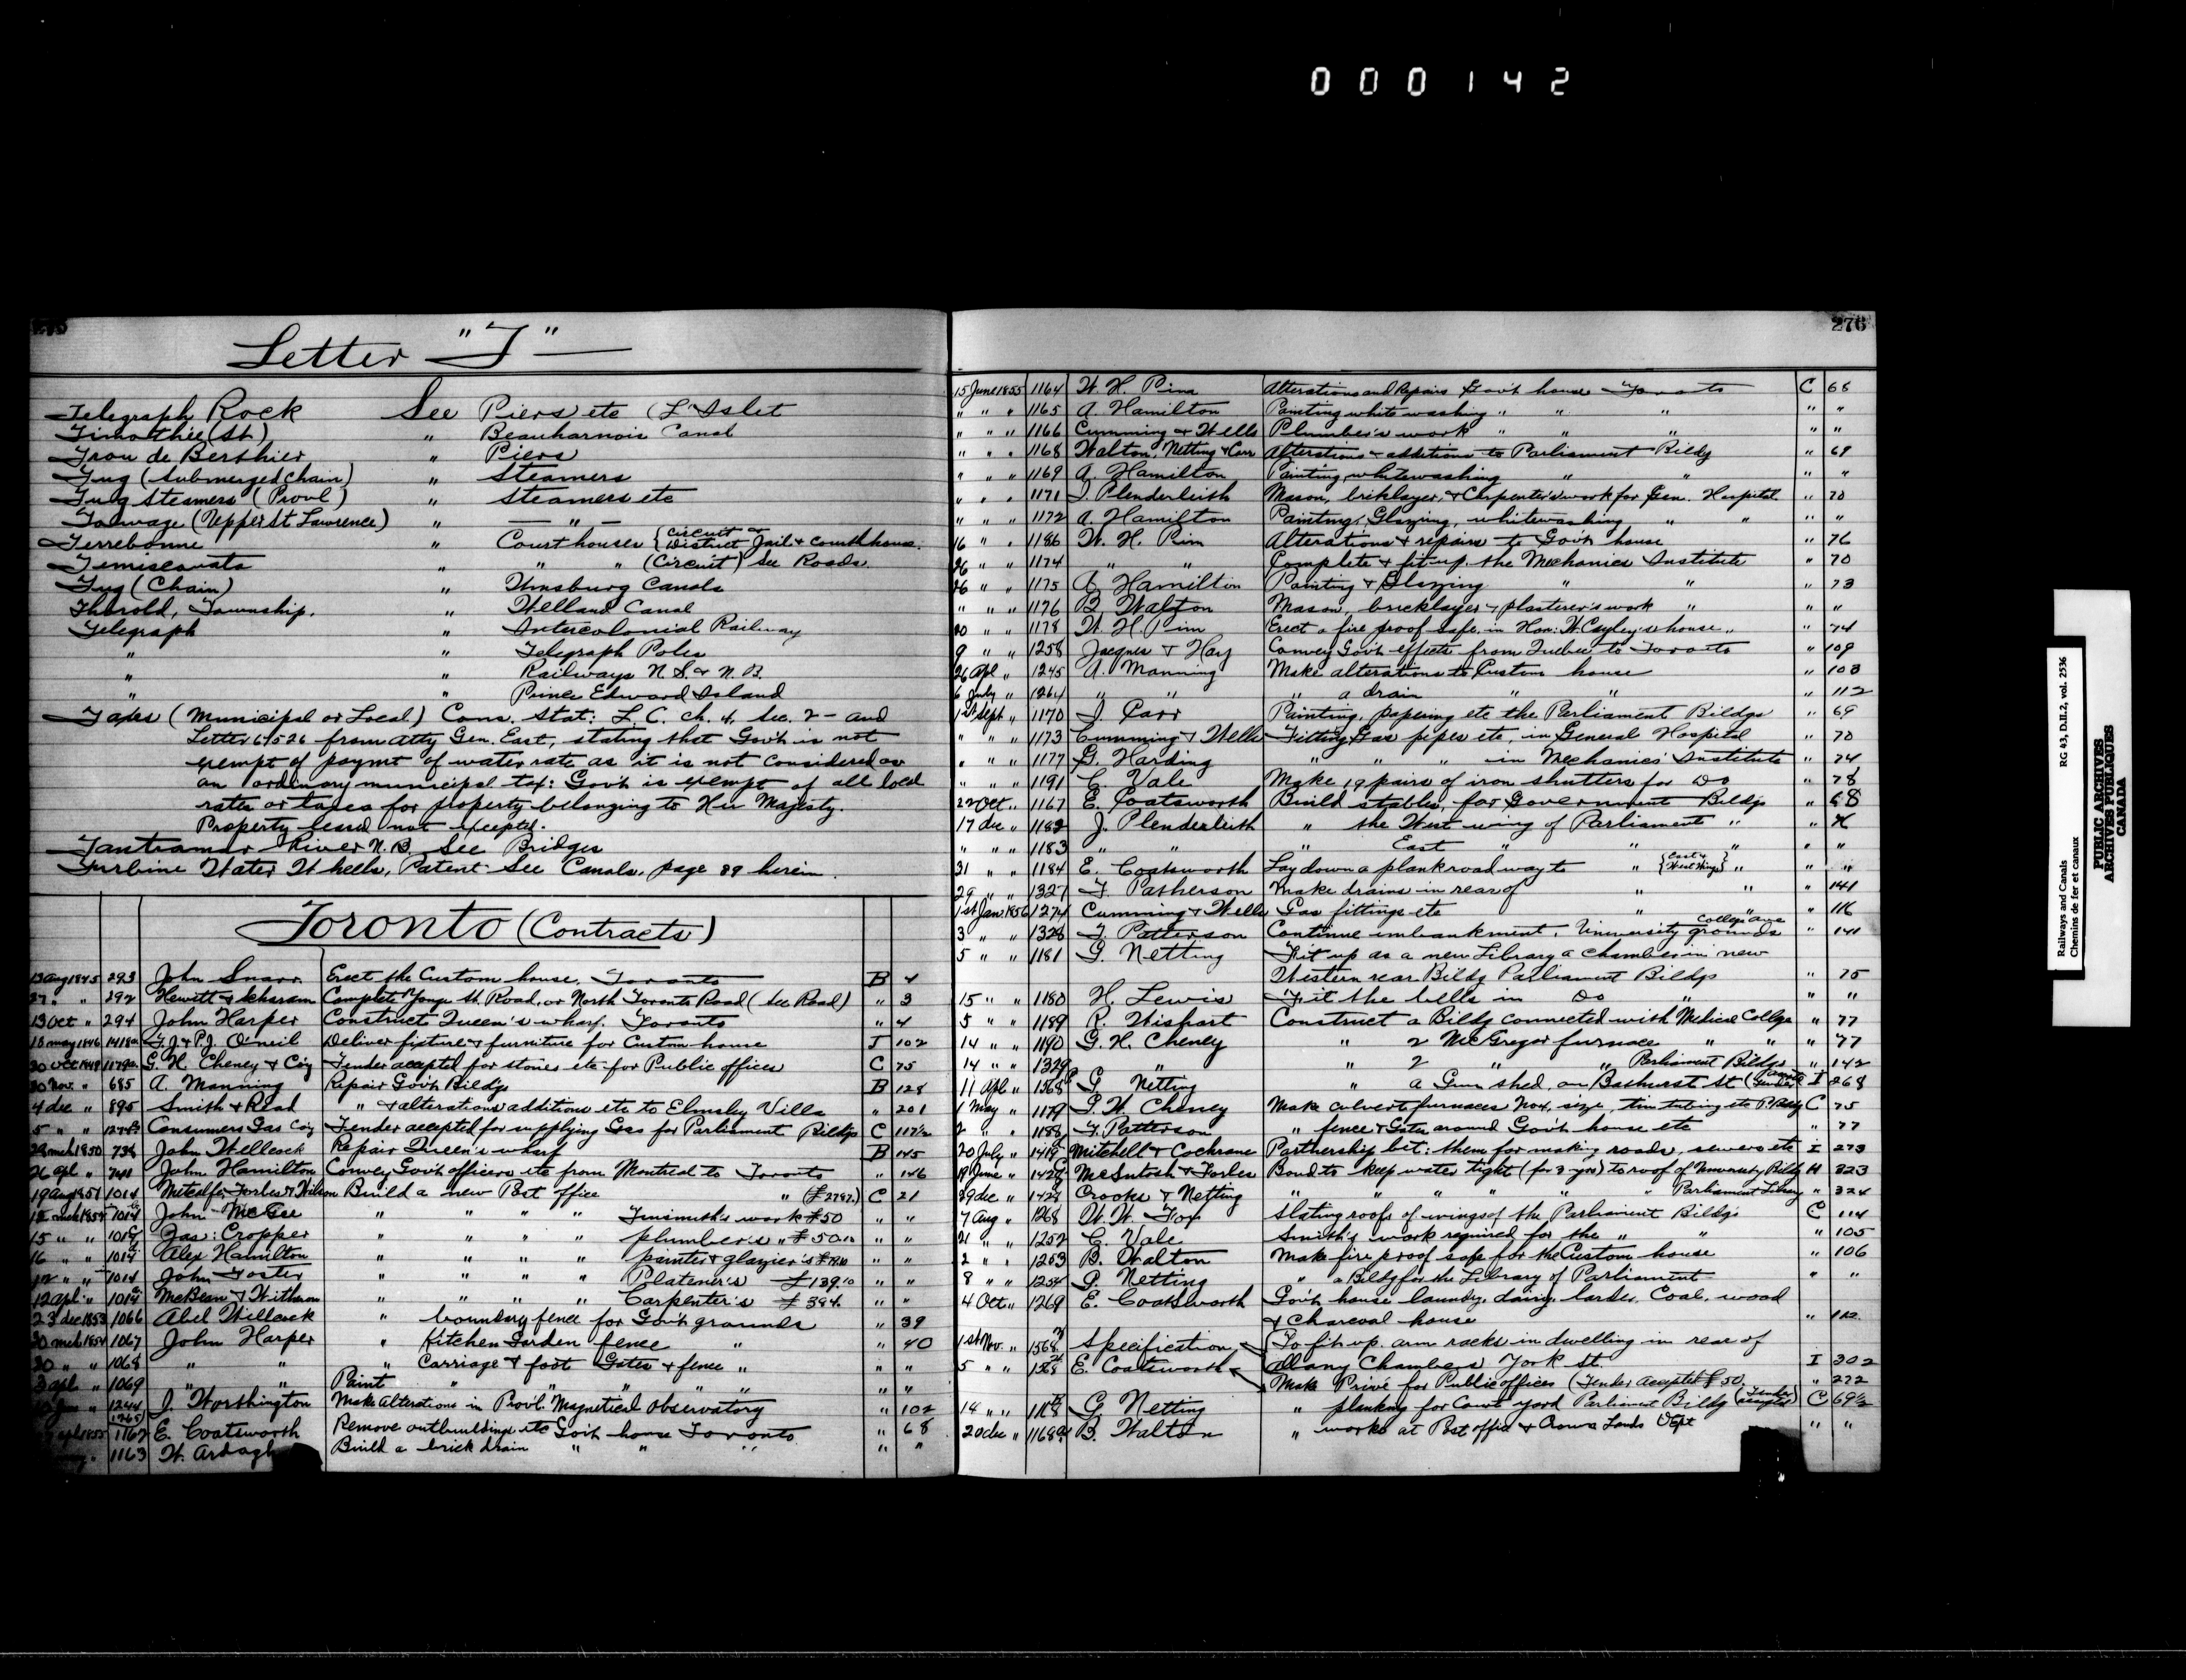 000142
Letter "T"
Telegraph Rock See Piers etc (L'Islet
Timothée (St) " Beauharnois Canal
Trou de Berthier " Piers
Tug (Submerged chain) " Steamers
Tug Steamers (Provl) " Steamers etc
Towage (Upper St Lawrence) " — " —
Terrebonne " Court houses {Circuit & District Jail & Courthouse.
Temiscouata " " (Circuit) See Roads.
Tug (Chain) " Wmsburg Canals
Thorold, Township. " Welland Canal
Telegraph " Intercolonial Railway
" " Telegraph Poles
" " Railways N.S. & N.B.
" " Prince Edward Island
Taxes (Municipal or Local) Cons. Stat: L.C. ch. 4, Sec. 2 - and
Letter 61526 from Atty Gen. East, stating that Govt is not
exempt of paymt of water rate as it is not considered as
an ordinary municipal tax: Govt is exempt of all local
rates or taxes for property belonging to Her Majesty.
Property leased not excepted.
Tantramar River N.B. See Bridges
Turbine Water Wheels, Patent. See Canals, page 89 herein.
Toronto (Contracts)
13 Aug 1845 293 John Snarr Erect the Custom house, Toronto B 4
27 " " 292 Hewitt & Complete Yonge St. Road, or North Toronto Road (See Road) " 3
13 Oct " 294 John Harper Construct Queen's wharf. Toronto " 4
18 may 1846 1418a T.J. & P.J. O'neil Deliver fixture & furniture for Custom-house I 102
20 Oct 1849 1179a G. H. Cheney & Coy Tender accepted for stoves etc for Public offices C 75
20 Nov. " 685 A. Manning Repair Govt Bildgs B 128
4 dec " 895 Smith & Read " & alterations additions etc to Elmsley Villa " 201
5 " " Consumers Gas Coy Tender accepted for supplying Gas for Parliament Bildgs C 117½
28 mch 1850 738 John Wellcock Repair Queen's wharf B 145
26 apl " 741 John Hamilton Convey Govt officers etc from Montreal to Toronto " 146
19 Aug 1851 1014 Metcalfe, Forbes & Wilson Build a new Post office " (£2787.) C 21
15 mch 1854 1014 John McGee " " " " Tinsmith's work £50 " "
15 " " 1014 Jas: Cropper " " " " plumber's " £50.10 " "
16 " " 1014 Alex Hamilton " " " " painter & glazier's " "
12 " " 1014 John Foster " " " " Platerer's £139.10 " "
12 apl " 1014 McBean & Witherow " " " " Carpenter's £394. " "
23 dec 1853 1066 Abel Willcock " boundary fence for Govt grounds " 39
20 mch 1854 1067 John Harper " Kitchen Garden fence " " 40
20 " " 1068 " " " Carriage & foot Gates & fence " " "
3 apl " 1069 " " Paint " " " " " "
" 1244 J. Worthington Make Alterations in Provl Magnetical Observatory " 102
1265
apl 1855 1162 E. Coatsworth Remove outbuildings etc Govt house Toronto " 68
1163 W. Ardagh Build a brick drain " " " " "
276
15 June 1855 1164 W. H. Pim Alterations and Repairs Govt house Toronto C 68
" " " 1165 A. Hamilton Painting white washing " " " " "
" " " 1166 Cumming & Wells Plumber's work " " " " "
" " " 1168 Walton, Netting & Carr Alterations & additions to Parliament Bildg " 69
" " " 1169 A. Hamilton Painting, whitewashing " " " "
" " " 1171 J. Plenderleith Mason, bricklayer, & Carpenter's work for Gen. Hospital " 70
" " " 1172 A. Hamilton Painting, Glazing, whitewashing " " " "
16 " " 1186 W. H. Pim Alterations & repairs to Govt house " 76
26 " " 1174 " " Complete & fit-up the Mechanics Institute " 70
26 " " 1175 A. Hamilton Painting & Glazing " " " 73
" " " 1176 B. Walton Mason, bricklayer & plasterer's work " " "
20 " " 1178 W. H. Pim Erect a fire proof safe in Hon: W. Cayley's house " " 74
9 " " 1258 Jacques & Hay Convey Govt effects from Quebec to Toronto " 109
26 Apl " 1245 A. Manning Make alterations to Custom house " 103
6 July " 1264 " " " a drain " " " 112
1st Sept " 1170 J. Carr Painting, papering etc the Parliament Bildgs " 69
" " " 1173 Cumming & Wells Fitting Gas pipes etc in General Hospital " 70
" " " 1177 G. Harding " " " in Mechanics' Institute " 74
" " " 1191 C. Vale Make 19 pairs of iron shutters for Do " 78
22 Oct " 1167 E. Coatsworth Build stables, for Government Bildgs " 68
17 dec " 1182 J. Plenderleith " the West wing of Parliament " "
" " " 1183 " " " East " " " " "
31 " " 1184 E. Coatsworth Lay down a plank road way to " {East & West Wings} " " "
29 " " 1327 T. Patherson Make drains in rear of " " " 141
1st Jan 1856 1274 Cumming & Wells Gas fittings etc " " " 116
3 " " 1328 T. Patterson Continue embankment, University grounds College Ave " 141
5 " " 1181 G. Netting Fit up as a new Library a chamber in new
Western rear Bildg Parliament Bildgs " 75
15 " " 1180 H. Lewis Fit the bells in Do " " "
5 " " 1189 R. Wishart Construct a Bildg connected with Medical College " 77
14 " " 1190 G. H. Cheney " 2 McGregor furnace " " " 77
14 " " 1329 " " 2 " " Parliament Bildgs " 142
11 Apl " 1568 G Netting " a Gun shed, on Bathurst St I 268
1 May " 1179 G. H. Cheney Make culvert furnaces No 4, size, tin tubing etc P. Bildg C 75
2 " " 1188 T. Patterson " fence & Gates around Govt house etc " 77
20 July " 1419 Mitchell & Cochrane Partnership bet: them for making roads, sewers etc I 273
19 June " 1427 McIntosh & Forbes Bond to keep water tight (for 3 yrs) to roof of University Bildg H 323
29 dec " 1428 Crooks & Netting " " " " " " Parliament Library " 324
7 Aug " 1268 W. W. Fox Slating roofs of wings of the Parliament Bildgs C 114
21 " " 1252 C. Vale Smith's work required for the " " " 105
2 " " 1253 B. Walton Make fire proof safe for the Custom house " 106
8 " " 1254 G. Netting " a Bildg for the Library of Parliament " "
4 Oct " 1269 E. Coatsworth Govt house laundry, dairy, larder, Coal, wood
& Charcoal house " 112
1st Nov. " 1568 Specification To fit up arm racks in dwelling in rear of
5 " " 1568 E. Coatsworth Albany Chambers York St. I 302
Make Privé for Public offices (Tender accepted £50. " 272
14 " " G Netting " planking for Court yard Parliament Bildg (Tender accepted) C 69½
20 dec " 1168 B. Walton " works at Post office & Crown Lands Dept " "
Railways and Canals RG 43, D.II.2, vol. 2536
Chemins de fer et canaux
PUBLIC ARCHIVES
ARCHIVES PUBLIQUES
CANADA